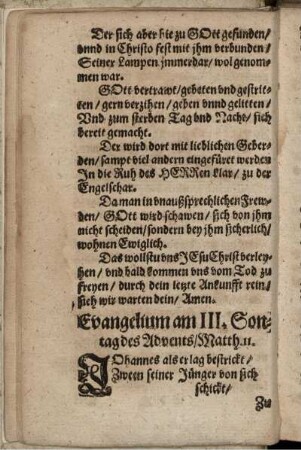 Der sich aber hie zu GOtt gefunden/
vnnd in Christo fest mit jhm verbunden/
Seiner Lampen jmmerdar/ wol genom-
men war.
GOtt vertrawt/ gebeten vnd gestrit-
ten/ gern verzihen/ geben vnnd gelitten/
Vnd zum sterben Tag vnd Nacht/ sich
bereit gemacht.
Der wird dort mit lieblichen Geber-
den/ sampt viel andern eingefüret werden
In die Ruh des HERRen klar/ zu der
Engelschar.
Da man in vnaußsprechlichen Frew-
den/ GOtt wird schawen/ sich von jhm
nicht scheiden/ sondern bey jhm sicherlich/
wohnen Ewiglich.
Das wollstu vns JEsu Christ verley-
hen/ vnd bald kommen vns vom Tod zu
freyen/ durch dein letzte Ankunfft rein/
sich wir warten dein/ Amen.
Evangelium am III. Son-
tag des Advents/ Matth. 11.
JOhannes als er lag bestrickt/
Zween seiner Jünger von sich
schickt/
Zu